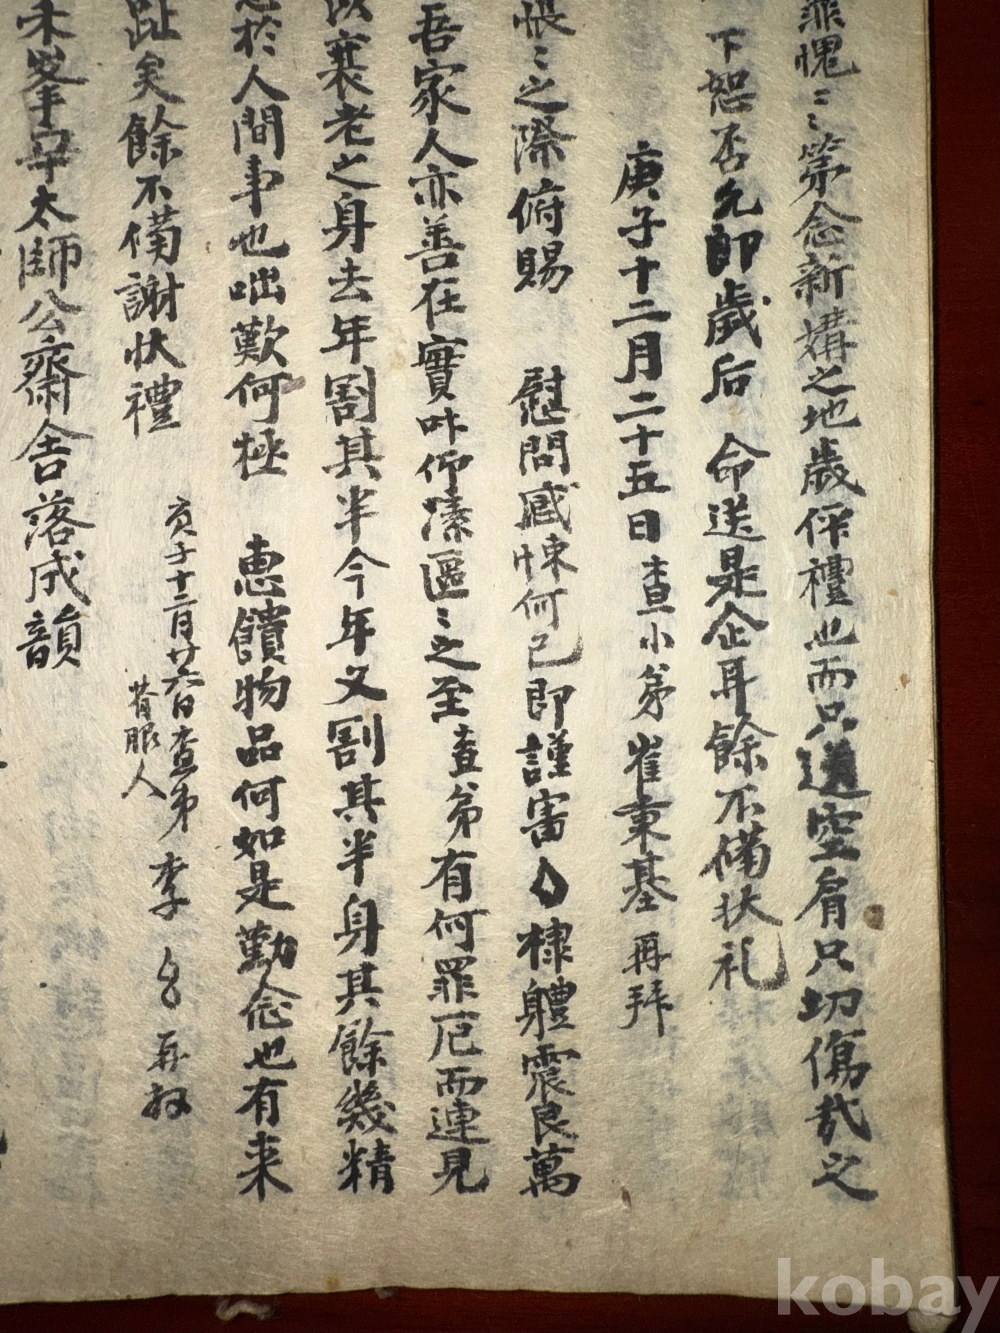 愧〻第念新搆之地歲保禮也而只送空肩只切傷哉之
下恕否允卽歲后 命送是企耳餘不備狀礼
庚子十二月二十五日査小弟 崔秉基 再拜
悵〻之際俯賜 慰問感悚何已卽謹審 棣體震艮萬
吾家人亦善在實叶仰溱區〻之至査弟有何罪厄而連見
衰老之身去年割其半今年又割其半身其餘幾精
於人間事也咄歎何極 惠饋物品何如是勤念也有来
趾矣餘不備謝狀禮
庚子十二月廿六日査弟 李 再拜
朞服人
太師公齋舍落成韻
kobay